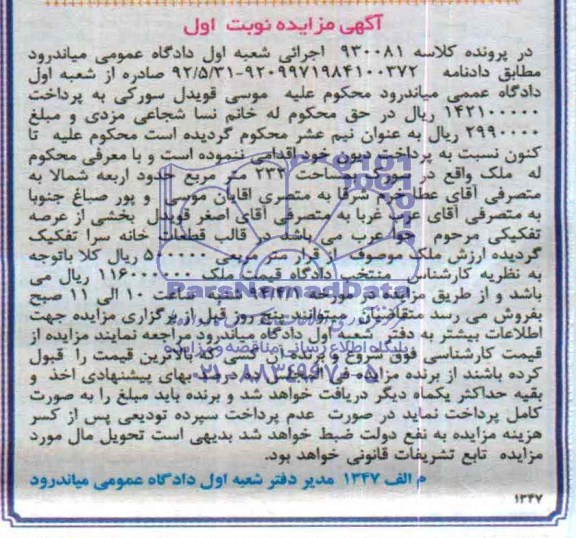 آگهی مزایده نوبت اول
در پرونده کلاسه ۹۳۰۰۸۱ اجرائی شعبه اول دادگاه عمومی میاندرود
مطابق دادنامه ۹۲۰۹۹۷۱۹۸۴۱۰۰۳۷۲-۹۲/۵/۳۱ صادره از شعبه اول
دادگاه عممی میاندرود محکوم علیه موسی قویدل سورکی به پرداخت
۱۴۲۱۰۰۰۰۰ ریال در حق محکوم له خانم نسا شجاعی مزدی و مبلغ
۲۹۹۰۰۰۰ ریال به عنوان نیم عشر محکوم گردیده است محکوم علیه تا
کنون نسبت به پرداخت دیون خود اقدامی ننموده است و با معرفی محکوم
له ملک واقع در سورک بمساحت ۲۳۲ متر مربع حدود اربعه شمالا به
متصرفی آقای عطا خرم شرقا به متصری اقایان موسی و پور صباغ جنوبا
به متصرفی آقای عرب غربا به متصرفی آقای اصغر قویدل بخشی از عرصه
تفکیکی مرحوم عرب می باشد در قالب قطعات خانه سرا تفکیک
گردیده ارزش ملک موصوف از قرار متر مربعی ریال کلا باتوجه
به نظریه کارشناس منتخب دادگاه قیمت ملک ۱۱۶۰۰۰۰۰۰۰ ریال می
باشد و از طریق مزایده در مورخه شنبه ساعت ۱۰ الی ۱۱ صبح
بفروش می رسد متقاضیان میتوانند پنج روز قبل از برگزاری مزایده جهت
اطلاعات بیشتر به دفتر شعبه اول دادگاه میاندرود مراجعه نمایند مزایده از
قیمت کارشناسی فوق شروع و برنده آن کسی که بالاترین قیمت را قبول
کرده باشند از برنده مزایده فی المجلس ده درصد بهای پیشنهادی اخذ و
بقیه حداکثر یکماه دیگر دریافت خواهد شد و برنده باید مبلغ را به صورت
کامل پرداخت نماید در صورت عدم پرداخت سپرده تودیعی پس از کسر
هزینه مزایده به نفع دولت ضبط خواهد شد بدیهی است تحویل مال مورد
مزایده تابع تشریفات قانونی خواهد بود.
م الف ۱۳۴۷ مدیر دفتر شعبه اول دادگاه عمومی میاندرود
۱۳۴۷
ParsNamadData
پایگاه اطلاع رسانی مناقصه و مزایده
۰۲۱-۸۸۳۴۹۶۷۰-۵